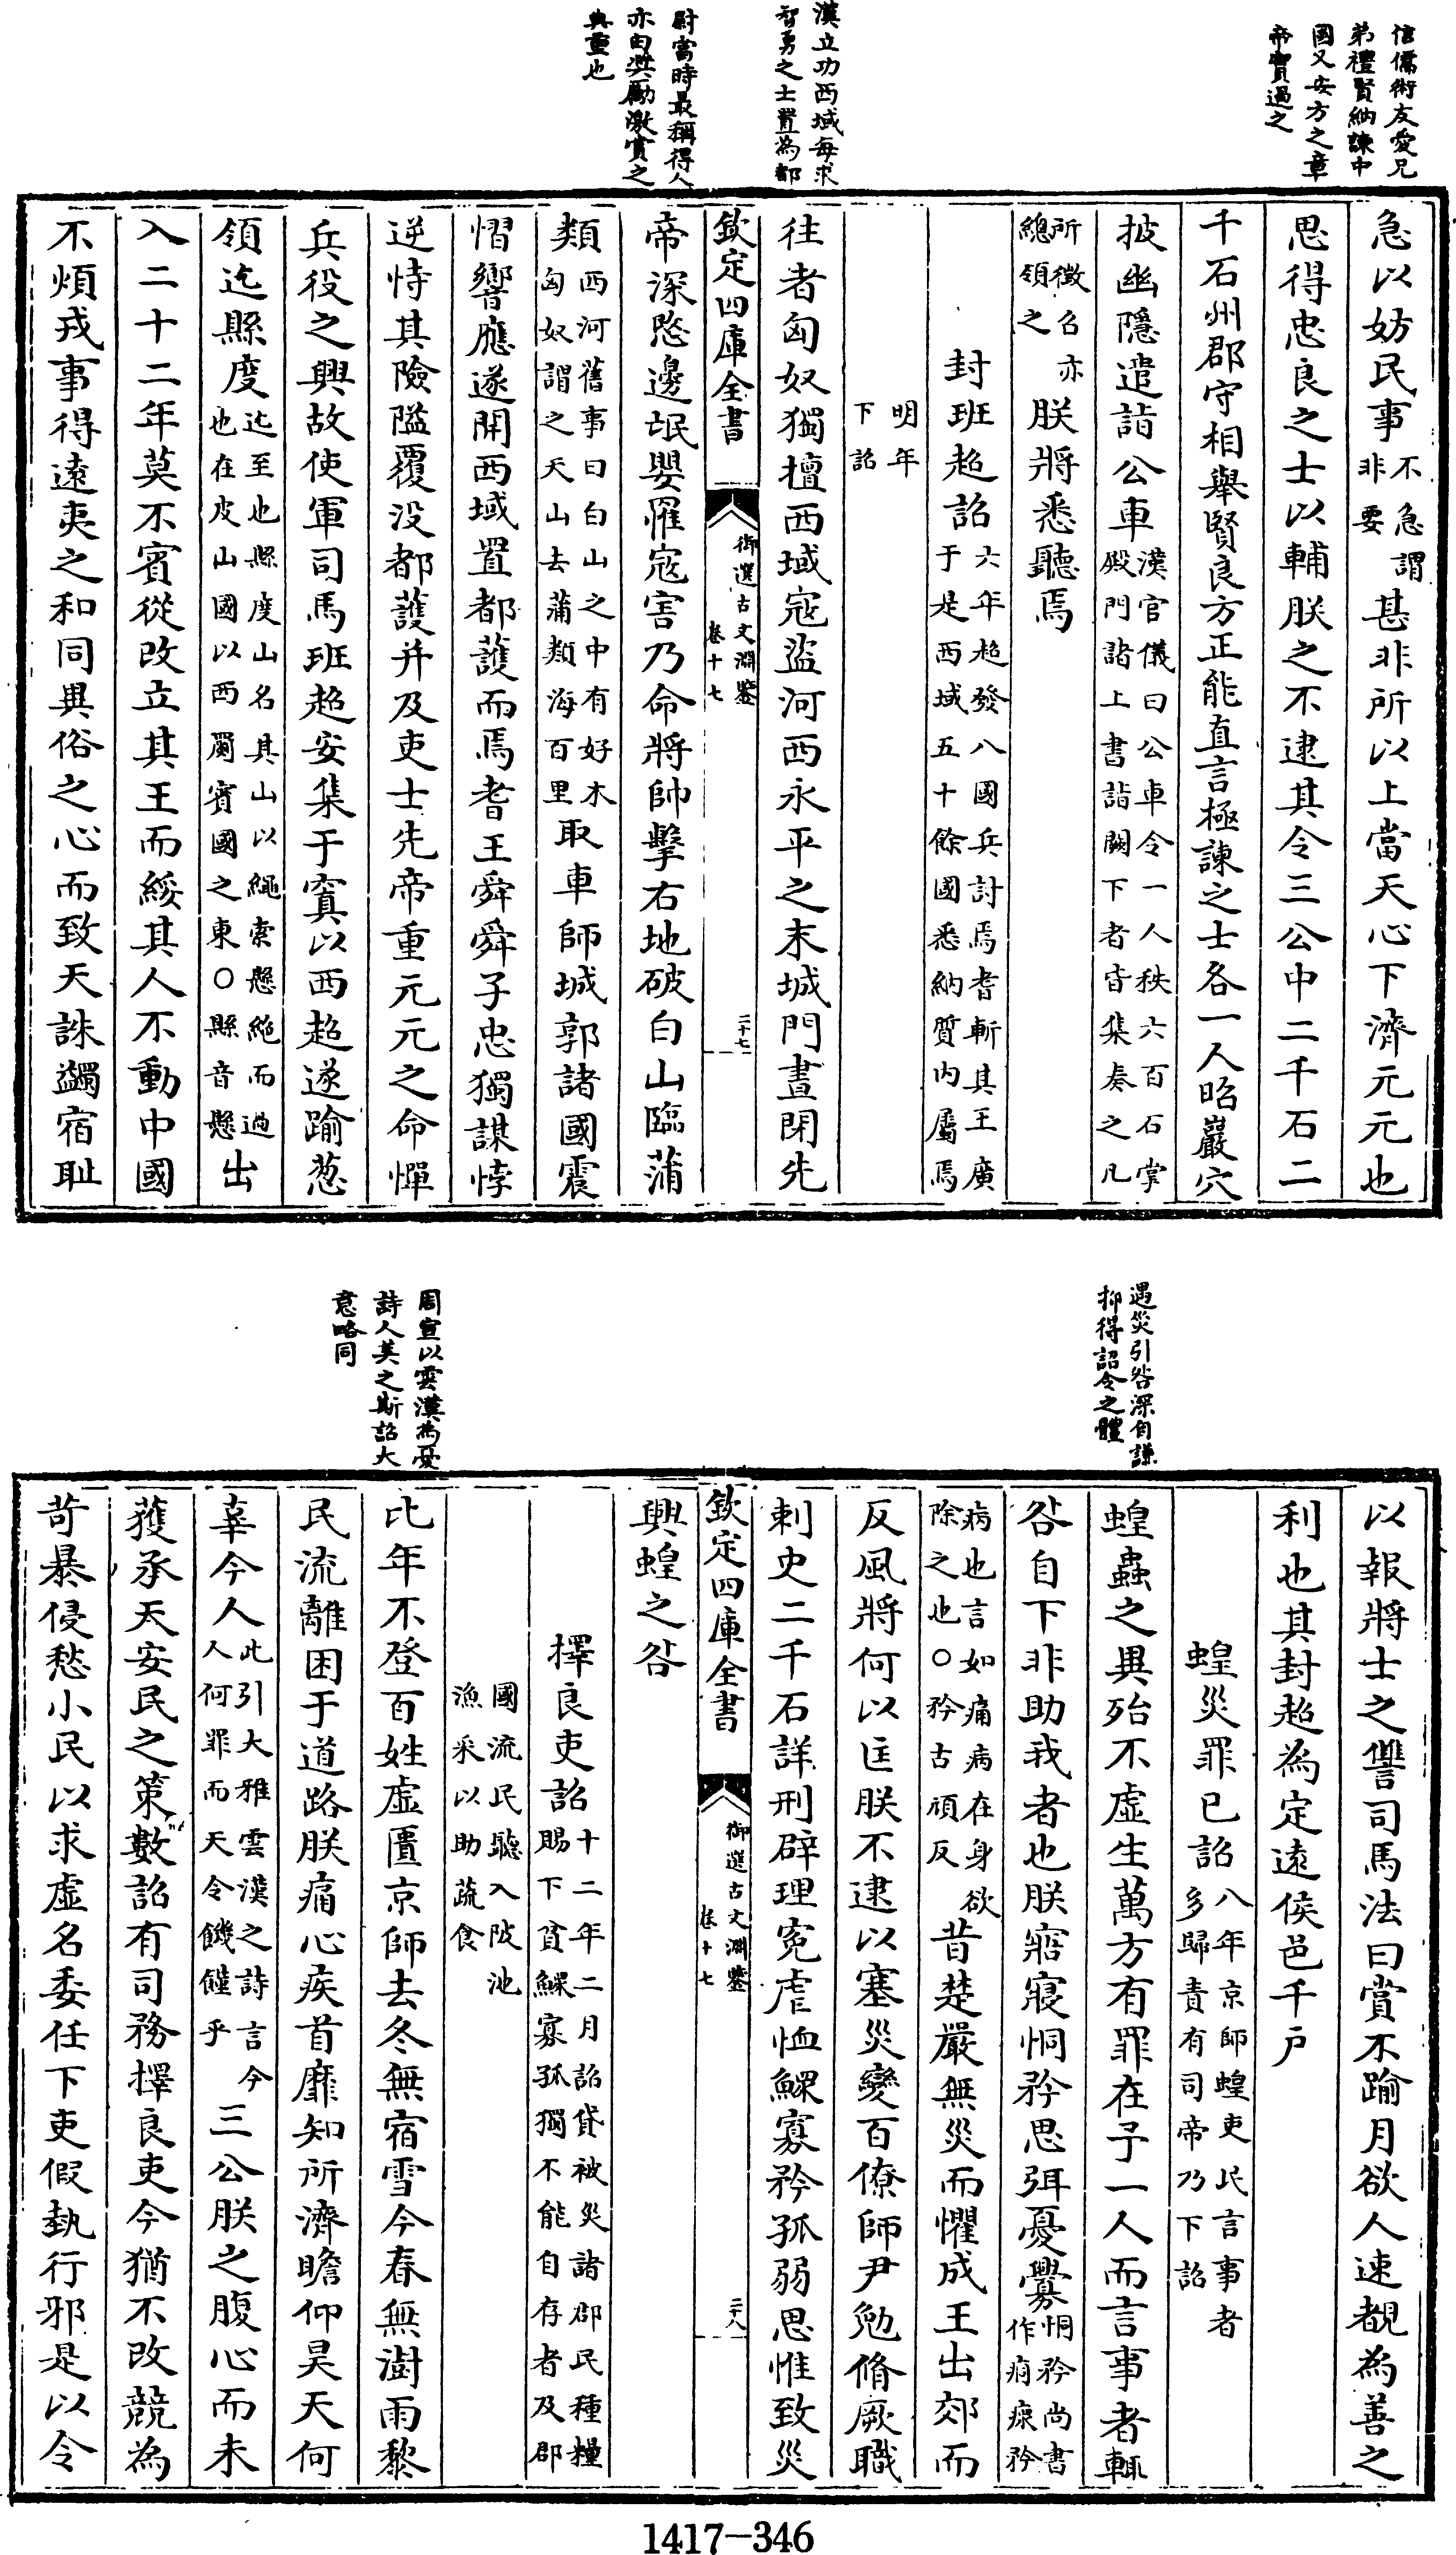 信儒術友愛兄
弟禮賢納諫中
國乂安方之章
帝實過之
漢立功西域每求
智勇之士置為都
尉當時最稱得人
亦由獎勵激賞之
典重也
急以妨民事不急謂
非要甚非所以上當天心下濟元元也
思得忠良之士以輔朕之不逮其令三公中二千石二
千石州郡守相舉賢良方正能直言極諫之士各一人昭巖穴
披幽隱遣詣公車漢官儀曰公車令一人秩六百石掌
殿門諸上書詣闕下者皆集奏之凡
所徵召亦
總領之朕將悉聽焉
封班超詔六年超發八國兵討焉耆斬其王廣
于是西域五十餘國悉納質内屬焉
明年
下詔
往者匈奴獨擅西域寇盜河西永平之末城門晝閉先
欽定四庫全書
御選古文淵鑒
卷十七
二十七
帝深愍邊氓嬰罹寇害乃命將帥擊右地破白山臨蒲
類西河舊事曰白山之中有好木
匈奴謂之天山去蒲類海百里取車師城郭諸國震
慴響應遂開西域置都護而焉耆王舜舜子忠獨謀悖
逆恃其險隘覆没都護并及吏士先帝重元元之命憚
兵役之興故使軍司馬班超安集于窴以西超遂踰葱
領迄縣度迄至也縣度山名其山以繩索懸絶而過
也在皮山國以西罽賓國之東○縣音懸出
入二十二年莫不賓從改立其王而綏其人不動中國
不煩戎事得遠夷之和同異俗之心而致天誅蠲宿耻
遇災引咎深自謙
抑得詔令之體
周宣以雲漢為憂
詩人美之斯詔大
意略同
以報將士之讐司馬法曰賞不踰月欲人速覩為善之
利也其封超為定遠侯邑千户
蝗災罪已詔八年京師蝗吏民言事者
多歸責有司帝乃下詔
蝗蟲之異殆不虛生萬方有罪在予一人而言事者輒
咎自下非助我者也朕寤寐恫矜思弭憂釁恫矜尚書
作痌瘝矜
病也言如痛病在身欲
除之也○矜古頑反昔楚嚴無災而懼成王出郊而
反風將何以匡朕不逮以塞災變百僚師尹勉脩厥職
刺史二千石詳刑辟理寃虐恤鰥寡矜孤弱思惟致災
欽定四庫全書
御選古文淵鑒
卷十七
二十八
興蝗之咎
擇良吏詔十二年二月詔貸被災諸郡民種糧
賜下貧鰥寡孤獨不能自存者及郡
國流民聽入陂池
漁采以助蔬食
比年不登百姓虛匱京師去冬無宿雪今春無澍雨黎
民流離困于道路朕痛心疾首靡知所濟瞻仰昊天何
辜今人此引大雅雲漢之詩言今
人何罪而天令饑饉乎三公朕之腹心而未
獲承天安民之策數詔有司務擇良吏今猶不改競為
苛暴侵愁小民以求虛名委任下吏假埶行邪是以令
1417-346